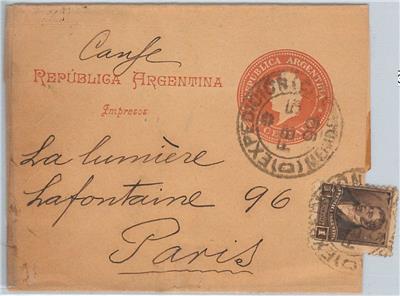 Canje
REPÚBLICA ARGENTINA
Impresos
REPUBLICA ARGENTINA
CENTAVO
EXPEDICION (C)
La lumière
Lafontaine 96
Paris
1